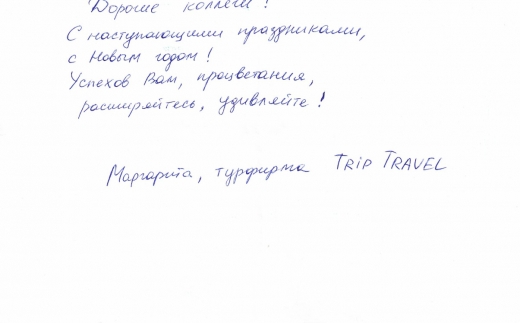 Дорогие коллеги!
С наступающими праздниками,
с Новым годом!
Успехов Вам, процветания,
расширяйтесь, удивляйте!
Маргарита, турфирма TRIP TRAVEL